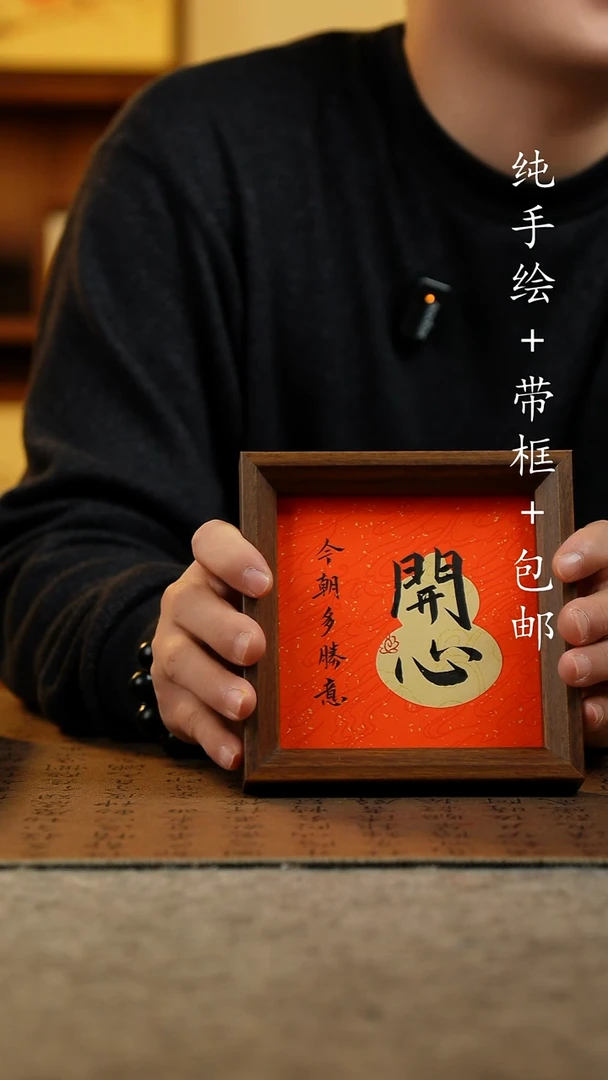 纯手绘+带框+包邮
開心
今朝多勝意